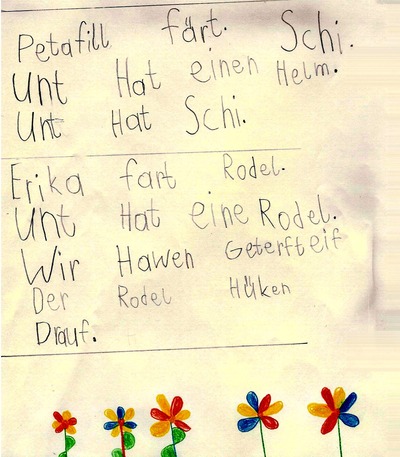 Petafill färt. Schi.
Unt Hat einen Helm.
Unt Hat Schi.
Erika fart Rodel.
Unt Hat eine Rodel.
Wir Hawen Geterfteif
Der Rodel Hüken
Drauf.